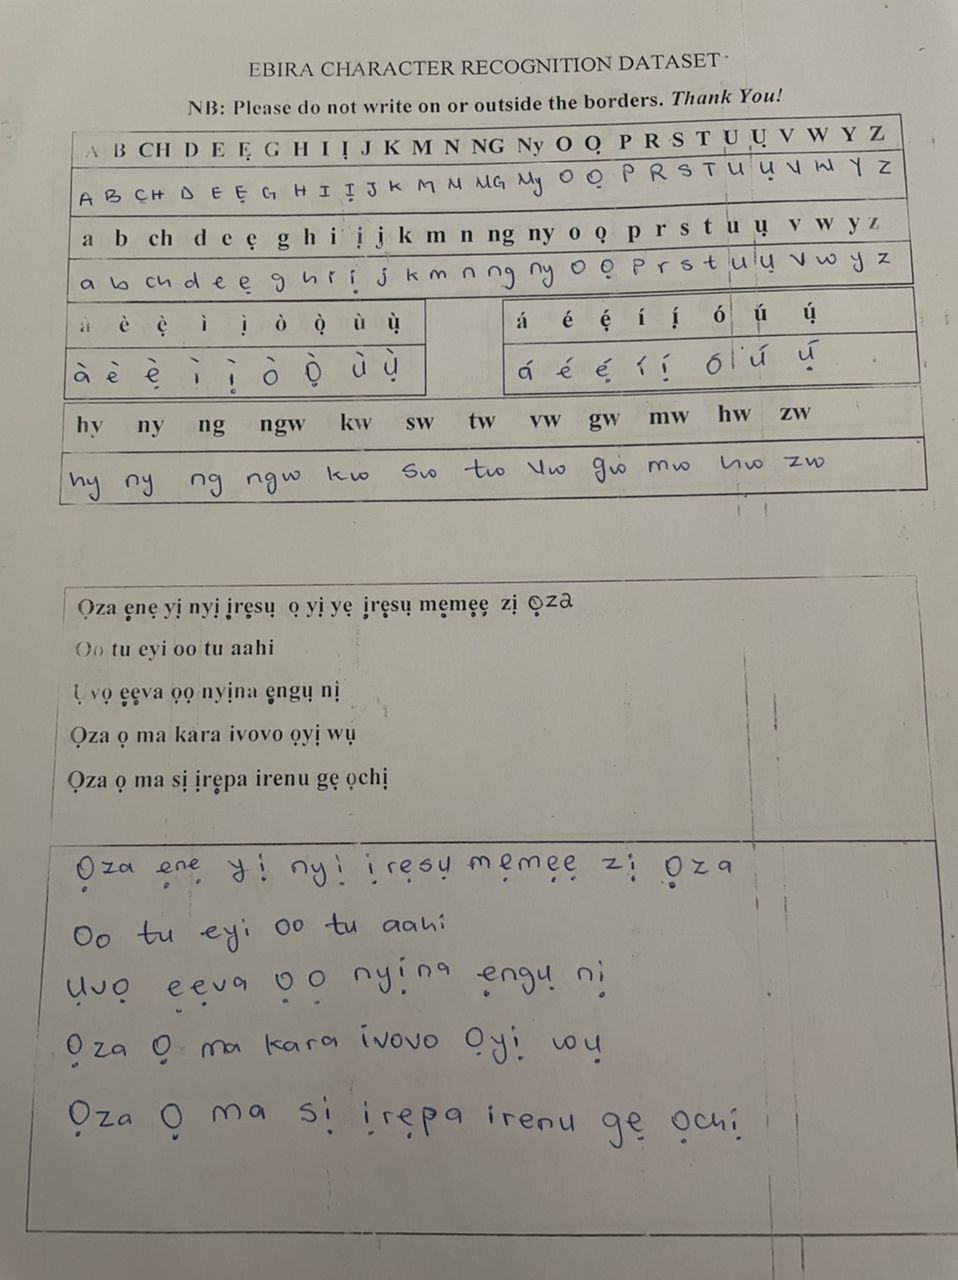 EBIRA CHARACTER RECOGNITION DATASET
NB: Please do not write on or outside the borders. Thank You!
A B CH D E Ẹ G H I Ị J K M N NG Ny O Ọ P R S T U Ụ V W Y Z
A B CH D E Ẹ G H I Ị J K M N NG Ny O Ọ P R S T U Ụ V W Y Z
a b ch d e ẹ g h i ị j k m n ng ny o ọ p r s t u ụ v w y z
a b ch d e ẹ g h i ị j k m n ng ny o ọ p r s t u ụ v w y z
à è ẹ̀ ì ị̀ ò ọ̀ ù ụ̀ á é ẹ́ í ị́ ó ụ́ ụ́
à è ẹ̀ ì ị̀ ò ọ̀ ù ụ̀ á é ẹ́ í ị́ ó ú ụ́
hy ny ng ngw kw sw tw vw gw mw hw zw
hy ny ng ngw kw sw tw vw gw mw hw zw
Ọza ẹnẹ yị nyị ịrẹsụ ọ yị yẹ ịrẹsụ mẹmẹẹ zị ọza
Oo tu eyi oo tu aahi
Ụvọ ẹẹva ọọ nyịna ẹngụ nị
Ọza ọ ma kara ivovo ọyị wụ
Ọza ọ ma sị ịrẹpa irenu gẹ ọchị
Ọza ẹnẹ yị nyị ịrẹsụ mẹmẹẹ zị Ọza
Oo tu eyi oo tu aahi
Ụvọ ẹẹva ọ ọ nyịna ẹngụ nị
Ọza Ọ ma kara ivovo Ọyị wụ
Ọza Ọ ma sị ịrẹpa irenu gẹ ọchị